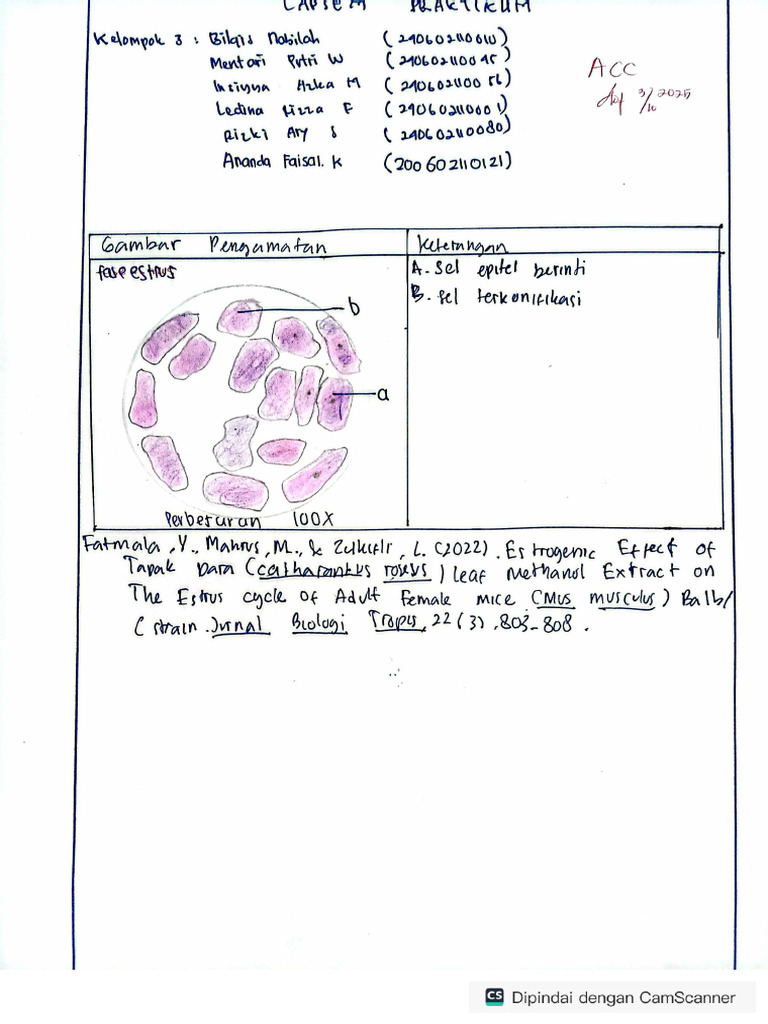 LAPSEM PRAKTIKUM
Kelompok 3 : Bilqis Nabilah (240602110010)
Mentari Putri W (240602110045)
Azka M (240602110056)
Ledina Lizza F (240602110001)
Rizki Ary S (240602110080)
Ananda Faisal. K (200602110121)
ACC
3/10 2025
Gambar Pengamatan
Keterangan
fase estrus
A. Sel epitel berinti
B. sel terkonifikasi
b
a
Perbesaran 100X
Fatmala, Y., Mahrus, M., & Zulkifli, L. (2022). Estrogenic Effect of
Tapak Dara (catharantus roseus) leaf Methanol Extract on
The Estrus cycle of Adult Female mice (Mus musculus) Balb/
C strain. Jurnal Biologi Tropis, 22(3), 803-808.
CS Dipindai dengan CamScanner